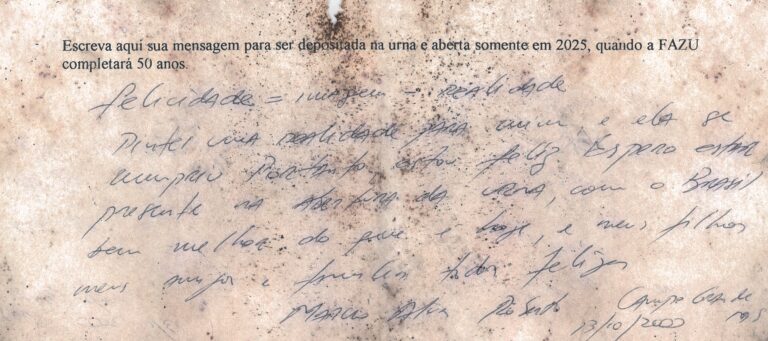 Escreva aqui sua mensagem para ser depositada na urna e aberta somente em 2025, quando a FAZU
completará 50 anos.
felicidade = imagem - realidade
Pintei uma realidade para mim e ela se
cumpriu Portanto, estou feliz Espero estar
presente na abertura da urna, com o Brasil
bem melhor do que é hoje, e meus filhos
meus e família todos felizes
Marcio Roberto
Campo Grande
13/10/2000